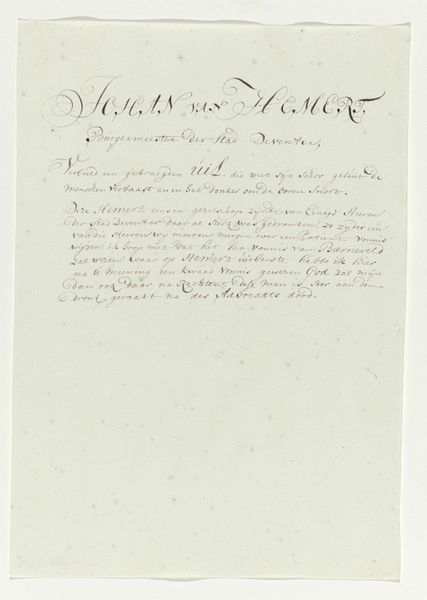 JOHAN VAN HEMERT,
Burgemeester der Stad Deventer,
Verbeeld een gekraagden UIL. die met syn geluit de
menschen verbaast en in het donker om de ooren snort.
Deze Hemert eens in gezelschap zynde van eenige Heeren
der Stad Deventer daar ze seer was gedronken, zo zyde een
van die Heeren wy moeten morgen over een Patient Vonnis
wyzen; ik hoop niet dat het het vonnis van Barneveld
zal wezen waar op Hemert uitberste hebbe ik hier
na u meening een kwaad vonnis gewezen God zal myn
dan ook daar na Rechten, deze man is seer aan den
dronk geraakt na des Advocaats dood.